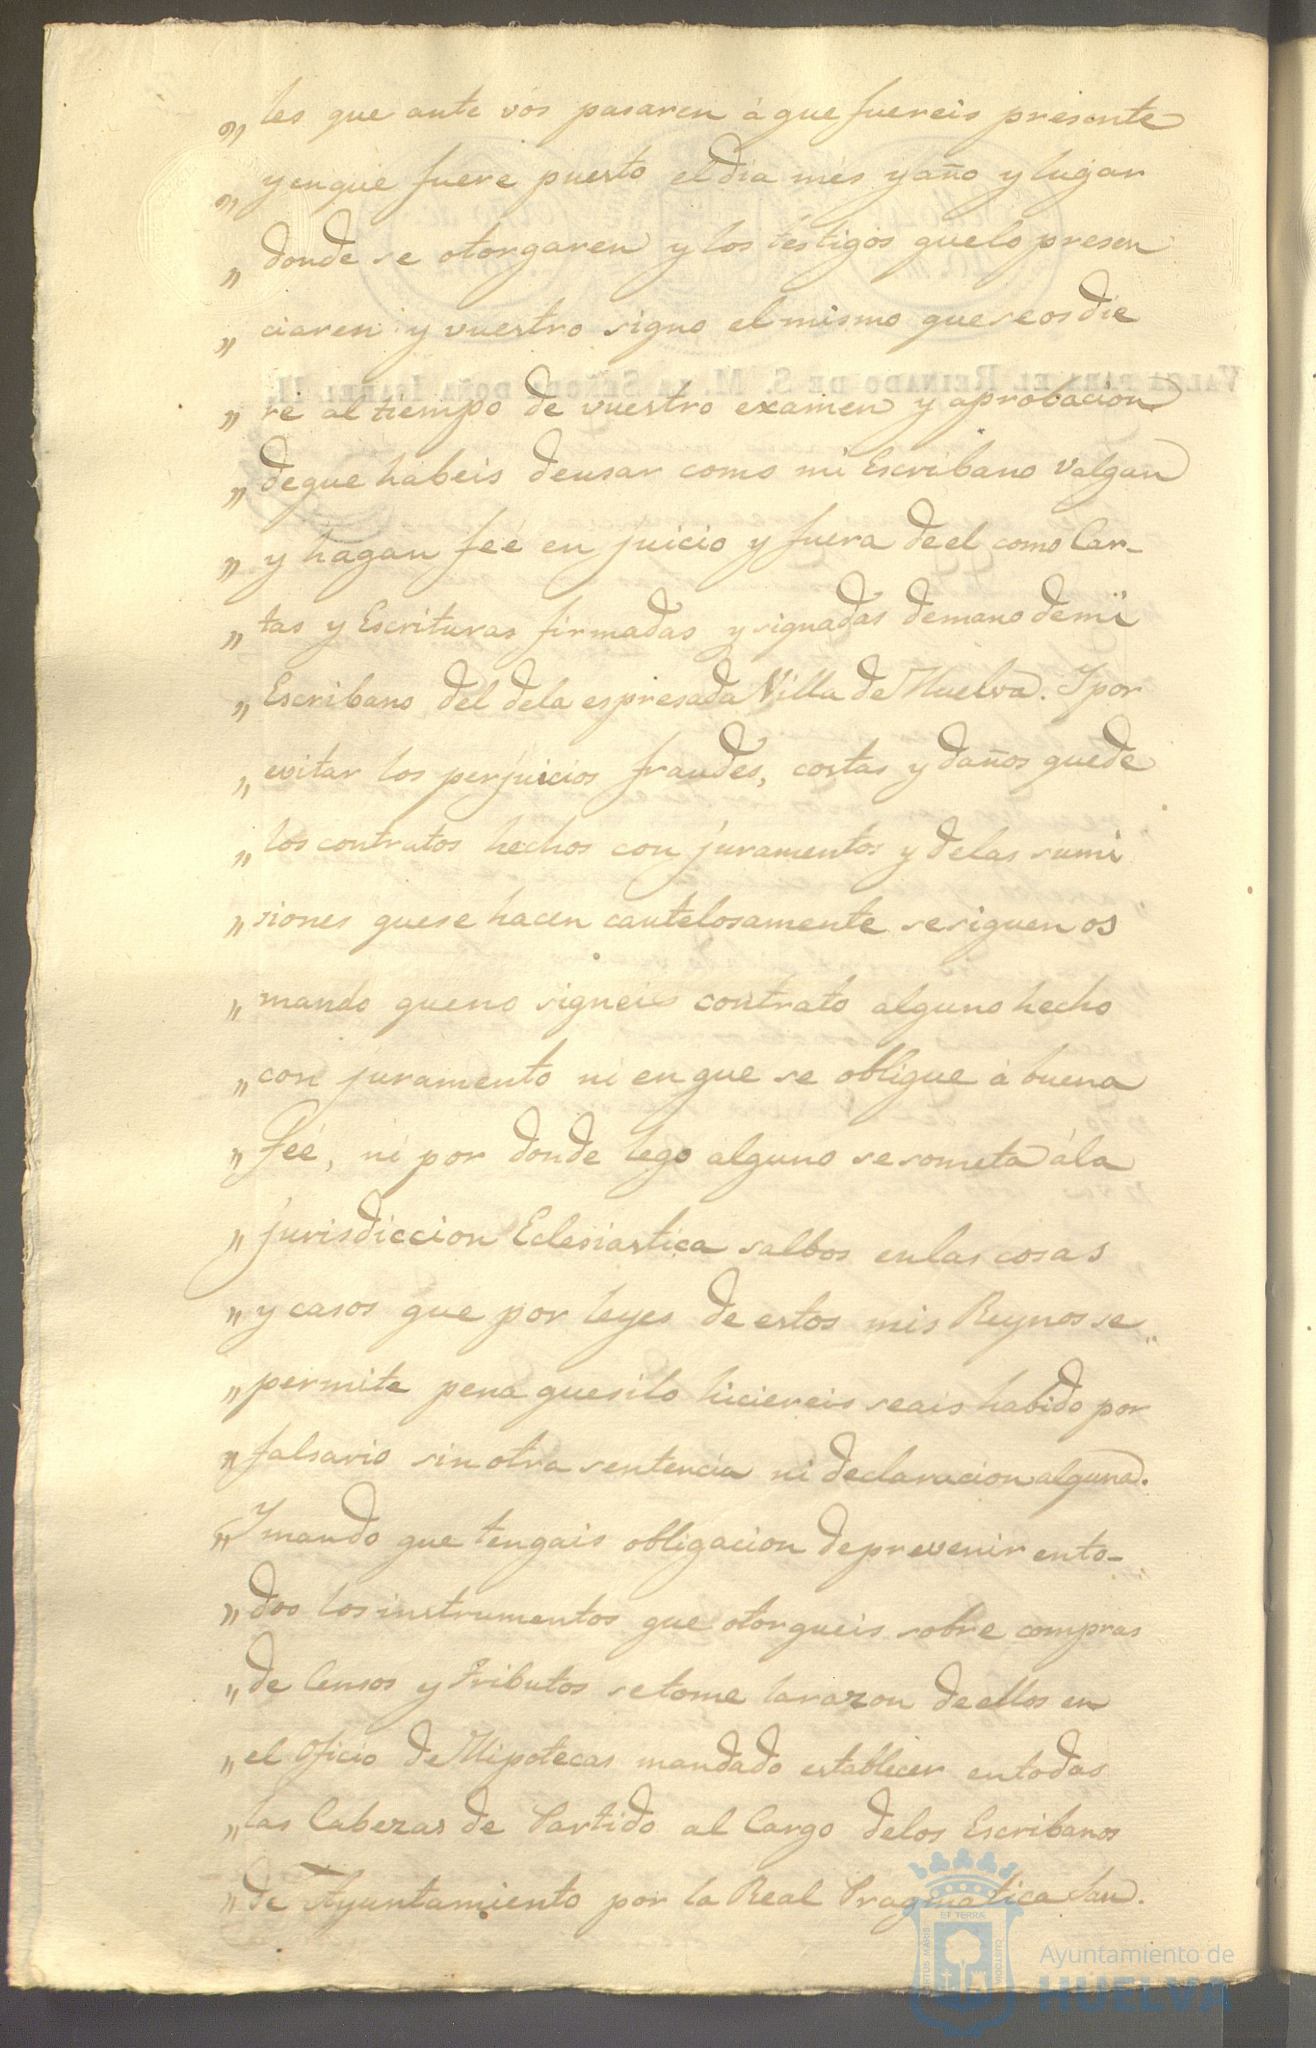 „ les que ante vós pasaren á que fuereis presente
„ y en que fuere puesto el dia mes y año y lugar
„ donde se otorgaren y los testigos quelo presen
„ ciaren y vuestro signo el mismo que se os die
„ re al tiempo de vuestro examen y aprobacion
„ de que habeis de usar como mi Escribano valgan
„ y hagan feé en juicio y fuera de el como Car-
„ tas y Escrituras firmadas y signadas de mano de mi
„ Escribano del dela espresada Villa de Huelva. Y por
„ evitar los perjuicios fraudes, costas y daños que de
„ los contratos hechos con juramentos y delas sumi
„ siones que se hacen cautelosamente se siguen os
„ mando que no signeis contrato alguno hecho
„ con juramento ni en que se obligue á buena
„ feé, ni por donde lego alguno se someta á la
„ jurisdiccion Eclesiastica salbos en las cosas
„ y casos que por leyes de estos mis Reynos se
„ permite pena que si lo hiciereis seais habido por
„ falsario sin otra sentencia ni declaracion alguna.
„ Y mando que tengais obligacion de prevenir en to-
„ dos los instrumentos que otorgueis sobre compras
„ de Censos y Tributos se tome la razon de ellos en
„ el Oficio de Hipotecas mandado establecer en todas
„ las Cabezas de Partido al Cargo delos Escribanos
„ de Ayuntamiento por la Real Pragmatica San.
VALGA PARA EL REINADO DE S. M. LA SEÑORA DOÑA ISABEL II.
Ayuntamiento de
HUELVA